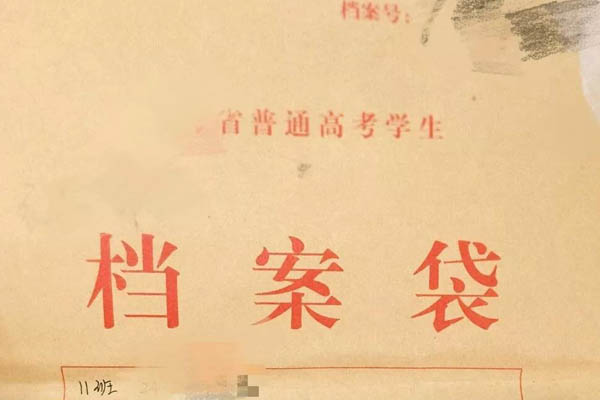 档案号:
省普通高考学生
档案袋
11班